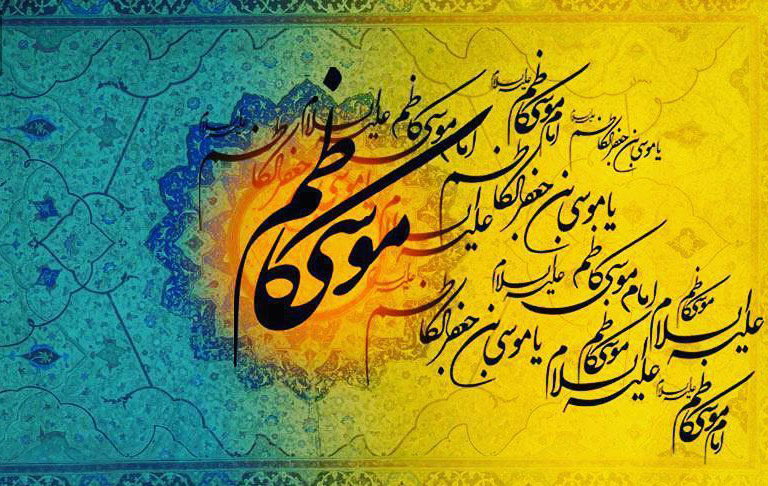 امام موسی کاظم علیه السلام
یا موسی بن جعفر الکاظم علیه السلام
امام موسی کاظم علیه السلام
یا موسی بن جعفر الکاظم علیه السلام
موسی کاظم
امام موسی کاظم علیه السلام
موسی کاظم علیه السلام
یا موسی بن جعفر الکاظم علیه السلام
موسی کاظم علیه السلام
امام موسی کاظم علیه السلام